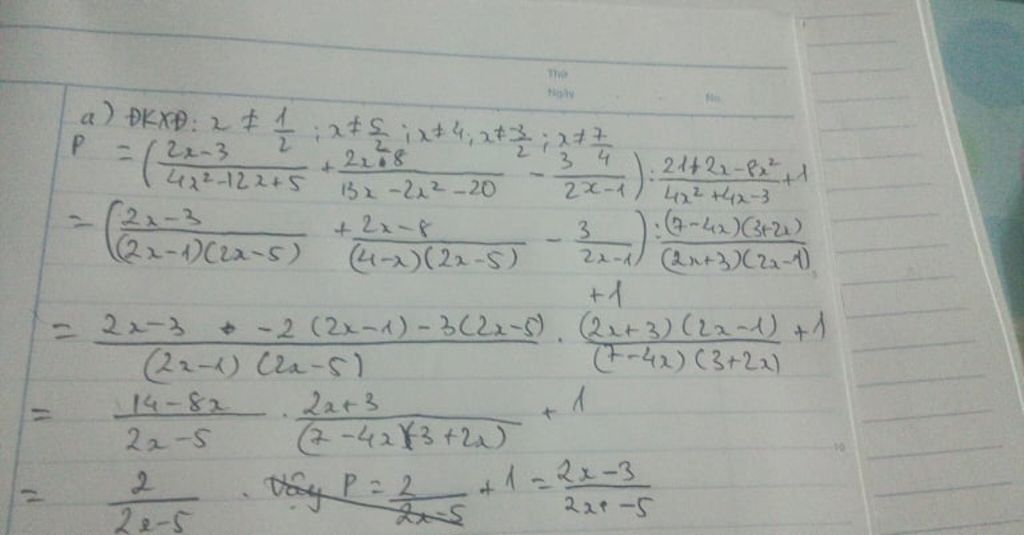 Thứ
Ngày No.
a) ĐKXĐ: x ≠ 1/2 ; x ≠ 5/2 ; x ≠ 4 ; x ≠ -3/2 ; x ≠ 7/4
P = ( (2x-3)/(4x²-12x+5) + (2x-8)/(13x-2x²-20) - 3/(2x-1) ) : (21+2x-8x²)/(4x²+4x-3) + 1
= ( (2x-3)/((2x-1)(2x-5)) + (2x-8)/((4-x)(2x-5)) - 3/(2x-1) ) : ((7-4x)(3+2x))/((2x+3)(2x-1))
+1
= (2x-3 + -2(2x-1)-3(2x-5))/((2x-1)(2x-5)) . ((2x+3)(2x-1))/((7-4x)(3+2x)) + 1
= (14-8x)/(2x-5) . (2x+3)/((7-4x)(3+2x)) + 1
= 2/(2x-5) . Vậy P = 2/(2x-5) + 1 = (2x-3)/(2x-5)
10